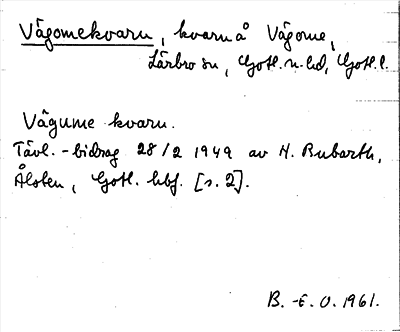 Vågomekvarn, kvarn å Vågome,
Lärbro sn, Gotl. n. hd, Gotl. l.
Vågume kvarn.
Tävl.-bidrag 28/2 1949 av N. Bubarth,
Ålsten, Gotl. hbf. [s. 2].
B.-E. O. 1961.